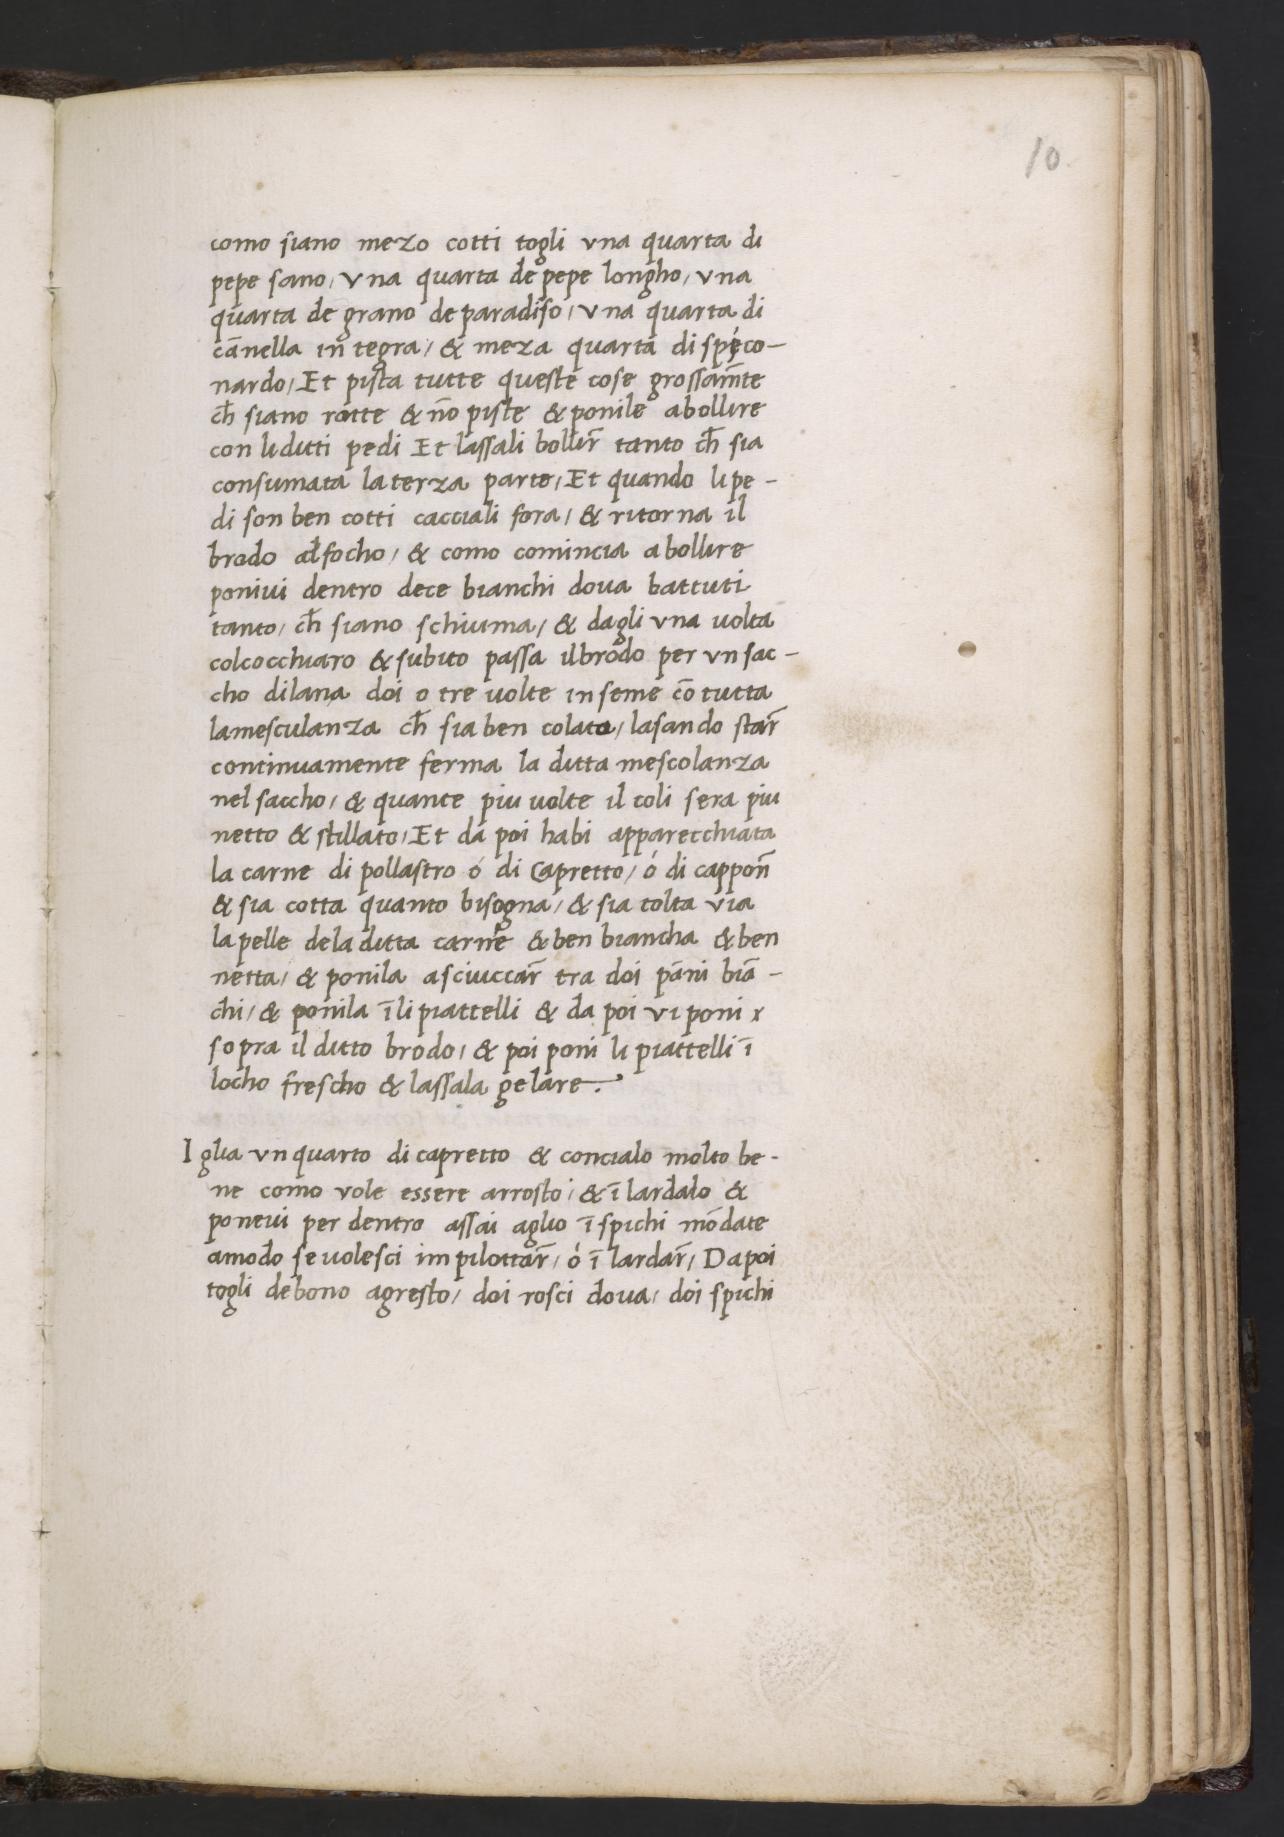 10
como siano mezo cotti togli vna quarta di
pepe sano, vna quarta de pepe longho, vna
quarta de grano de paradiso, vna quarta di
cānella integra, & meza quarta di spico-
nardo, Et pista tutte queste cose grossam̄te
ch̄ siano rotte & nō piste & ponile abollire
con li ditti pedi Et lassali bollir̄ tanto ch̄ sia
consumata la terza parte, Et quando li pe-
di son ben cotti cacciali fora, & ritorna il
brodo al focho, & como comincia abollire
ponivi dentro dece bianchi dova battuti
tanto, ch̄ siano schiuma, & dagli vna uolta
colcocchiaro & subito passa il brodo per vn sac-
cho di lana doi o tre uolte inseme cō tutta
la mesculanza ch̄ sia ben colata, lasando star̄
continuamente ferma la ditta mescolanza
nel saccho, & quante piu uolte il coli sera piu
netto & stillato, Et da poi habi apparecchiata
la carne di pollastro ó di Capretto, ó di cappon̄
& sia cotta quanto bisogna, & sia tolta via
la pelle de la ditta carne & ben biancha & ben
netta, & ponila asciuccar̄ tra doi pāni biā-
chi, & ponila ī li piattelli & da poi vi poni
sopra il ditto brodo, & poi poni li piattelli ī
locho frescho & lassala gelare.
Iglia vn quarto di capretto & concialo molto be-
ne como vole essere arrosto, & ī lardalo &
ponevi per dentro assai aglio ī spichi mōdate
amodo se uolesci impilottar̄, ó ī lardar̄, Dapoi
togli de bono agresto, doi rosci dova, doi spichi